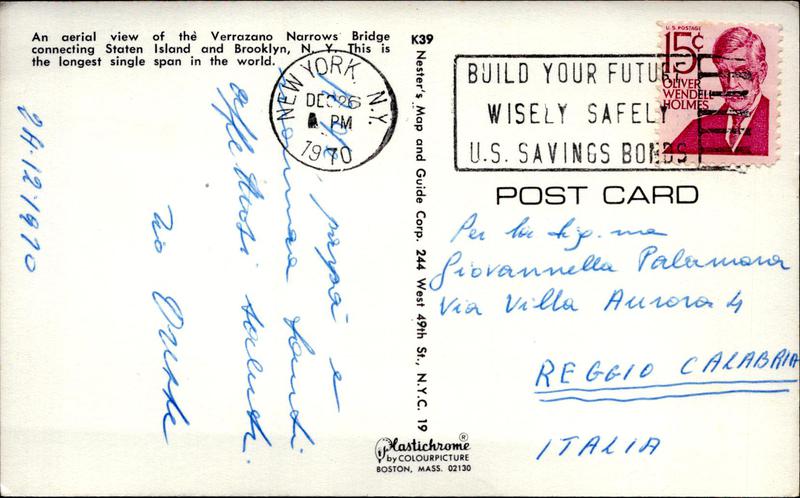 An aerial view of the Verrazano Narrows Bridge
connecting Staten Island and Brooklyn, N. Y. This is
the longest single span in the world.
K39
NEW YORK, N.Y.
DEC 26
PM
1970
BUILD YOUR FUTURE
WISELY SAFELY
U.S. SAVINGS BONDS
U.S. POSTAGE
15¢
OLIVER
WENDELL
HOLMES
POST CARD
Nester's Map and Guide Corp. 244 West 49th St., N.Y.C. 19
papà e
mamma tanti
affettuosi saluti.
zio
24.12.1970
Per la Sig.na
Giovannella Palamara
Via Villa Aurora 4
REGGIO CALABRIA
ITALIA
Plastichrome®
by COLOURPICTURE
BOSTON, MASS. 02130